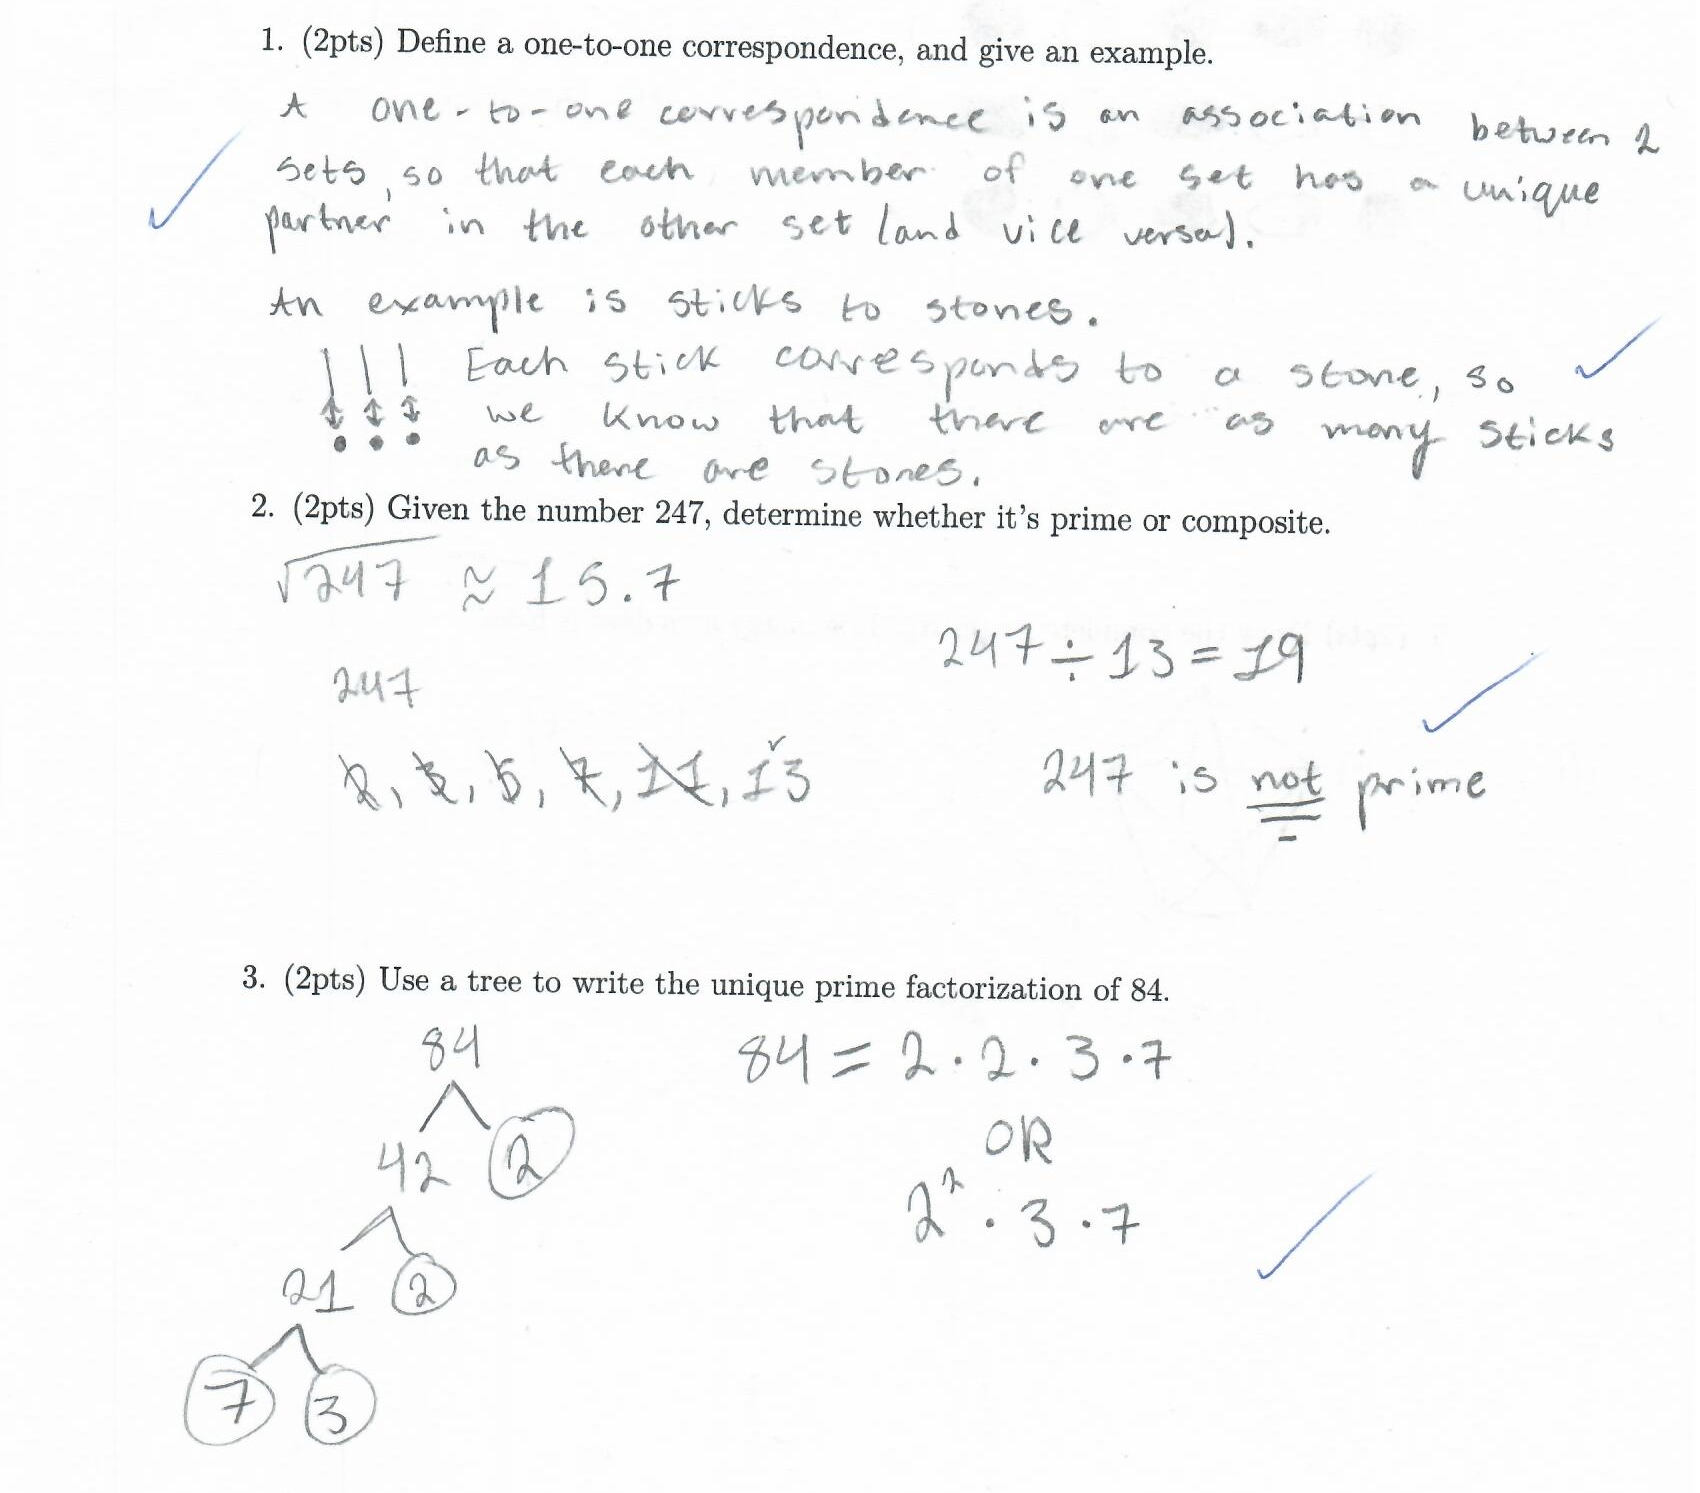 1. (2pts) Define a one-to-one correspondence, and give an example.
A one-to-one correspondence is an association between 2
sets, so that each member of one set has a unique
partner in the other set (and vice versa).
An example is sticks to stones.
Each stick corresponds to a stone, so
we know that there are as many sticks
as there are stones.
2. (2pts) Given the number 247, determine whether it's prime or composite.
√247 ≈ 15.7
247 ÷ 13 = 19
247
2, 3, 5, 7, 11, 13
247 is not prime
3. (2pts) Use a tree to write the unique prime factorization of 84.
84
84 = 2 · 2 · 3 · 7
OR
42 2
2² · 3 · 7
21 2
7 3